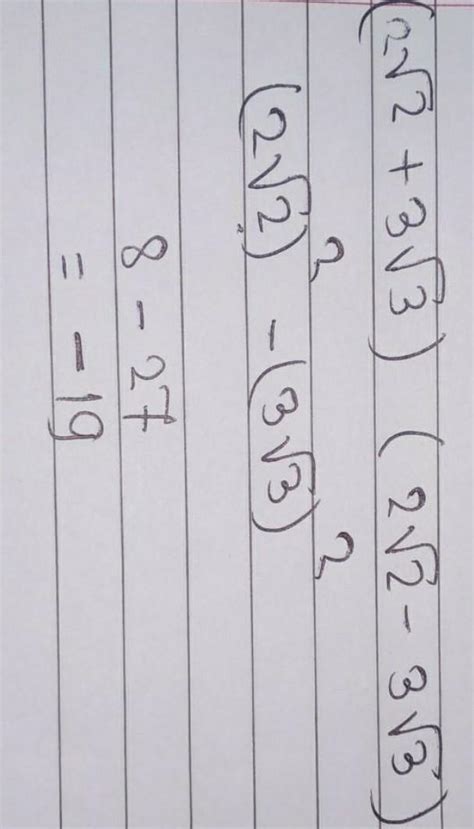 (2√2 + 3√3) (2√2 - 3√3)
(2√2)² - (3√3)²
8 - 27
= - 19